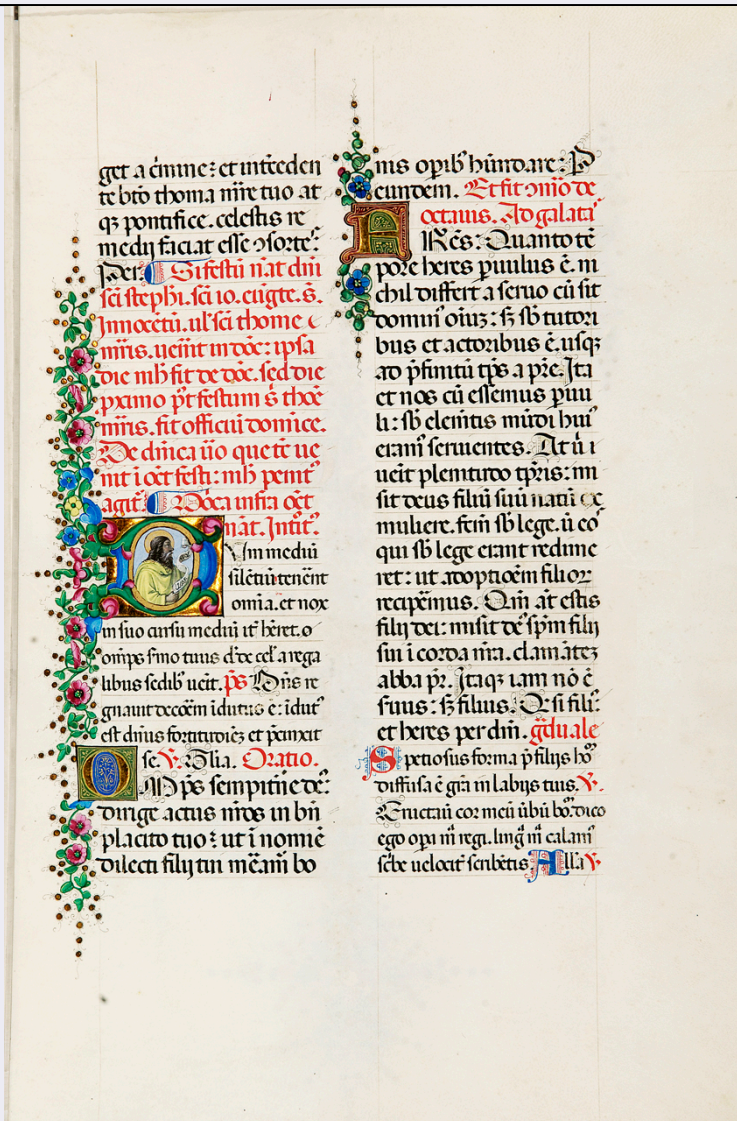 get a crimine: et interceden
te bto thoma mre tuo at
qȝ pontifice. celestis re
medii faciat esse ↄsortes.
Per. Si festū nat dni
sci stephi. sci io. eugte. s.
Innocētū. ul sci thome
mris. uenit in doē: ipsa
die nih fit de doē. sed die
pximo pt festum s thoē
mris. fit officiū domice.
De dnica ūo que tē ue
nit ī oct festi: nih permt
agit. Doca infra oct
nat. Intit.
Vm mediū
silētiū tenēnt
omia. et nox
in suo cursu mediū it hēret. o
omps smo tuus dne de cel a rega
libus sedib uēit. ps Dns re
gnauit decoēm īdutus e: īdut
est dnus fortitudiez et pcinxit
se. V. Glia. Oratio.
OMps sempitne deˀ
dirige actus nros in bn
placito tuo: ut ī nomiē
dilecti filij tui mēam bo
nis opib hūndare: P
eundem. Et fit ↄmio de
octauis. Ad galata
FRēs: Quanto tē
pore heres puulus ē. ni
chil differt a seruo cū sit
domin oiuȝ: sȝ sb tutori
bus et actoribus ē. usqȝ
ad pfinitū tps a pre. Ita
et nos cū essemus puu
li: sb elemtis mūdi hui
eram seruientes. At ū ī
ueit plenitudo tpris: mi
sit deus filiū suū natū ex
muliere. fcm sb lege. ū eo
qui sb lege erant redime
ret: ut adoptioēm filioꝝ
recipēmus. Qm āt estis
filij dei: misit deˀ spm filij
sui ī corda nra. clamātez
abba pr. Itaqȝ iam nō ē
suus: sȝ filius. Qr si filiˀ:
et heres per dm. gduale
Spetiosus forma p filijs hoˀ
diffusa ē gra in labijs tuis. V.
Eructau cor meū ūbū bo. dico
ego opa m regi. ling m calam
scbe uelocit scribētis Alla V.